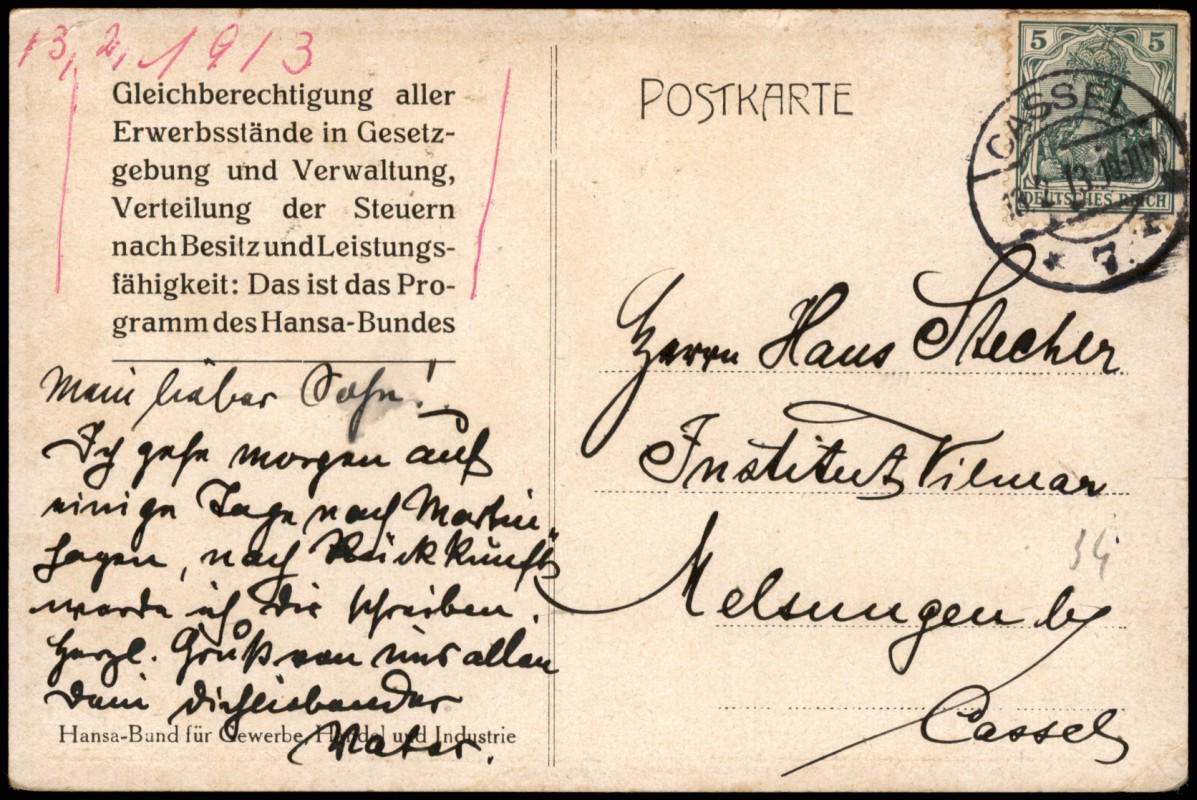 13. 2. 1913
Gleichberechtigung aller
Erwerbsstände in Gesetz-
gebung und Verwaltung,
Verteilung der Steuern
nach Besitz und Leistungs-
fähigkeit: Das ist das Pro-
gramm des Hansa-Bundes
Mein lieber Sohn!
Ich gehe morgen auf
einige Tage nach Martin-
hagen, nach Rückkunft
werde ich Dir schreiben.
Herzl. Gruß von uns allen
Dein Dichliebender
Vater.
Hansa-Bund für Gewerbe, Handel und Industrie
POSTKARTE
5 5
DEUTSCHES REICH
CASSEL
13.2.13.
* 7. *
Herrn Hans Stecher
Institut Vilmar
Melsungen b/
Cassel